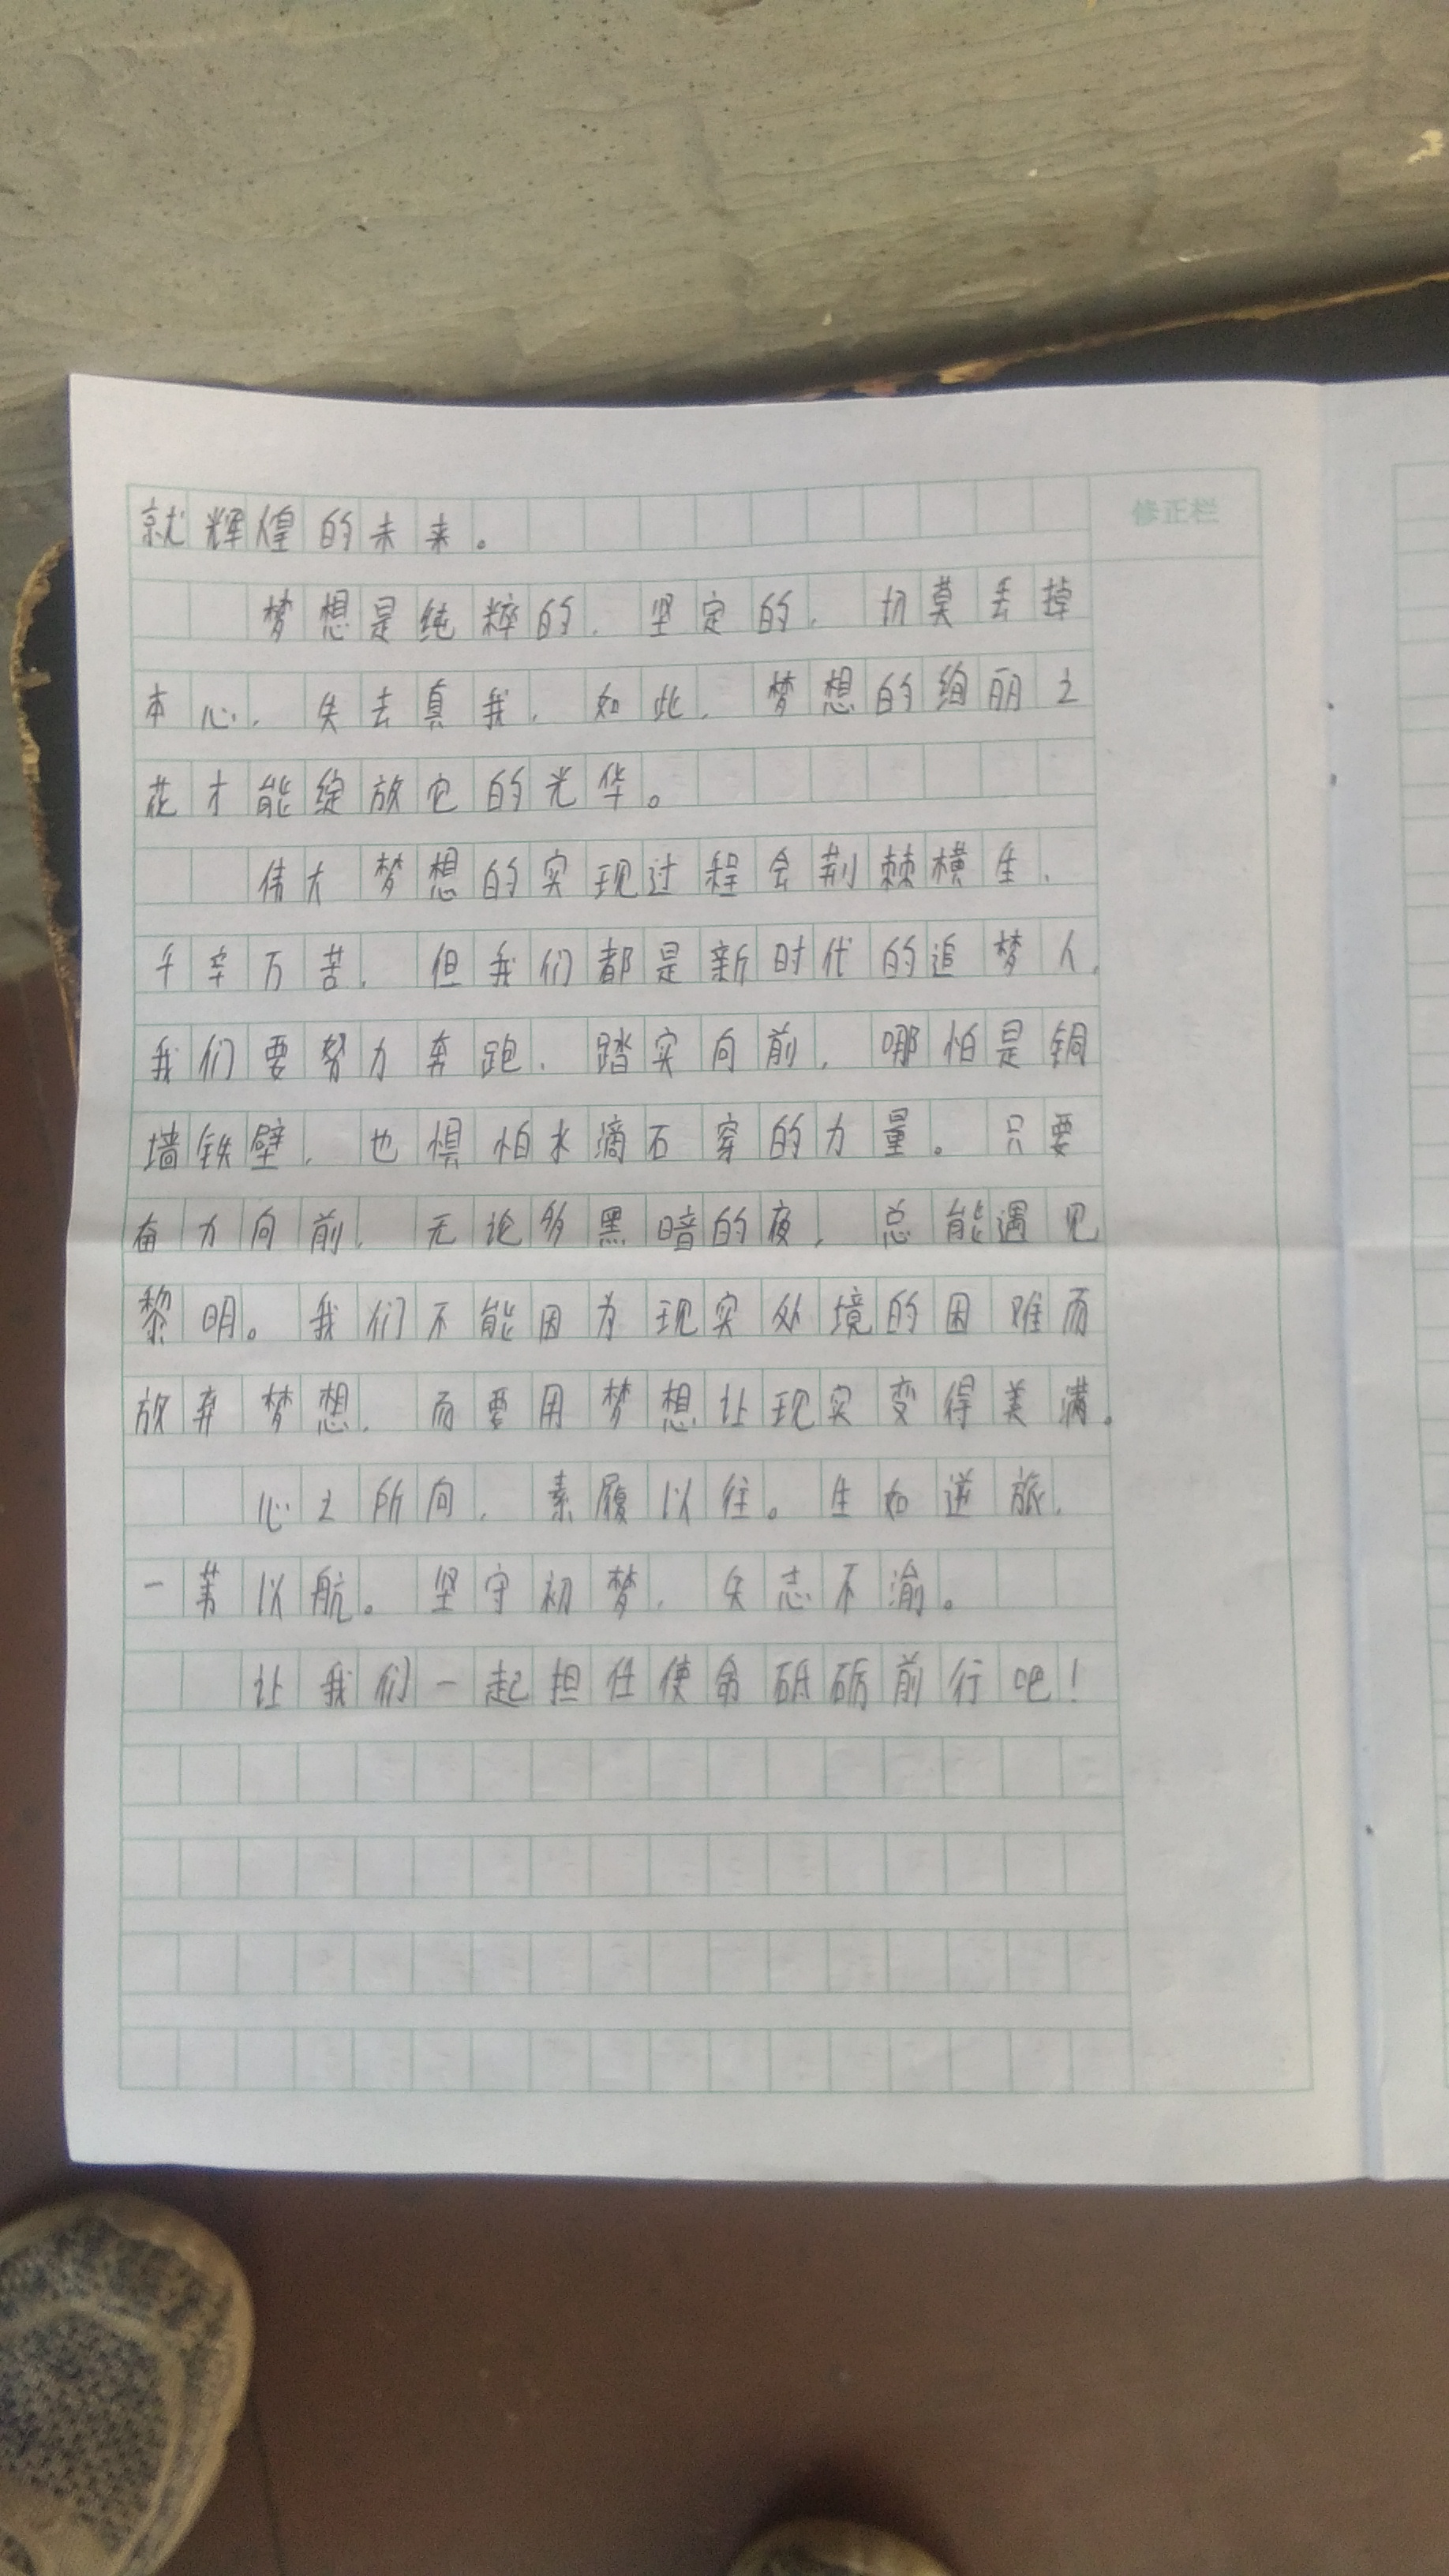 就辉煌的未来。
修正栏
梦想是纯粹的，坚定的，切莫丢掉
本心，失去真我，如此，梦想的绚丽之
花才能绽放它的光华。
伟大梦想的实现过程会荆棘横生、
千辛万苦，但我们都是新时代的追梦人，
我们要努力奔跑、踏实向前，哪怕是铜
墙铁壁，也惧怕水滴石穿的力量。只要
奋力向前，无论多黑暗的夜，总能遇见
黎明。我们不能因为现实处境的困难而
放弃梦想，而要用梦想让现实变得美满。
心之所向，素履以往。生如逆旅，
一苇以航。坚守初梦，矢志不渝。
让我们一起担任使命砥砺前行吧！